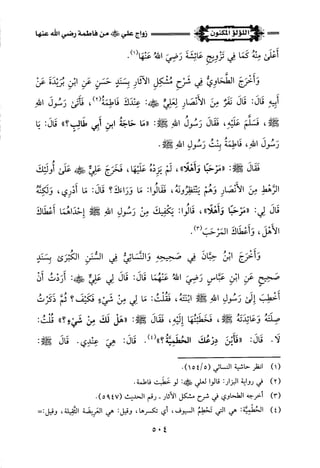 اللؤلؤ المكنون
زواج علي ﷺ من فاطمة رضي الله عنها
أَعْلَى مِنْهُ كَمَا فِي تَزْوِيجِ عَائِشَةَ رَضِيَ اللهُ عَنْهَا(١).
وَأَخْرَجَ الطَّحَاوِيُّ فِي شَرْحِ مُشْكِلِ الآثَارِ بِسَنَدٍ حَسَنٍ عَنِ ابْنِ بُرَيْدَةَ عَنْ
أَبِيهِ قَالَ: قَالَ نَفَرٌ مِنَ الأَنْصَارِ لِعَلِيٍّ ﷺ: عِنْدَكَ فَاطِمَةُ(٢)، فَأَتَى رَسُولَ اللهِ
ﷺ، فَسَلَّمَ عَلَيْهِ، فَقَالَ رَسُولُ اللهِ ﷺ: «مَا حَاجَةُ ابْنِ أَبِي طَالِبٍ؟» قَالَ: يَا
رَسُولَ اللهِ، فَاطِمَةُ بِنْتُ رَسُولِ اللهِ ﷺ.
فَقَالَ ﷺ: «مَرْحَبًا وَأَهْلًا»، لَمْ يَزِدْهُ عَلَيْهَا، فَخَرَجَ عَلِيٌّ عَلَى أُولَئِكَ
الرَّهْطِ مِنَ الأَنْصَارِ وَهُمْ يَنْتَظِرُونَهُ، فَقَالُوا: مَا وَرَاءَكَ؟ قَالَ: مَا أَدْرِي، وَلَكِنَّهُ
قَالَ لِي: «مَرْحَبًا وَأَهْلًا»، قَالُوا: يَكْفِيكَ مِنْ رَسُولِ اللهِ ﷺ إِحْدَاهُمَا أَعْطَاكَ
الأَهْلَ، وَأَعْطَاكَ المَرْحَبَ(٣).
وَأَخْرَجَ ابْنُ حِبَّانَ فِي صَحِيحِهِ وَالنَّسَائِيُّ فِي السُّنَنِ الكُبْرَى بِسَنَدٍ
صَحِيحٍ عَنِ ابْنِ عَبَّاسٍ رَضِيَ اللهُ عَنْهُمَا قَالَ: قَالَ لِي عَلِيٌّ: أَرَدْتُ أَنْ
أَخْطِبَ إِلَى رَسُولِ اللهِ ﷺ ابْنَتَهُ، فَقُلْتُ: مَا لِي مِنْ شَيْءٍ فَكَيْفَ؟ ثُمَّ ذَكَرْتُ
صِلَتَهُ وَعَائِدَتَهُ ﷺ، فَخَطَبْتُهَا إِلَيْهِ، فَقَالَ ﷺ: «هَلْ لَكَ مِنْ شَيْءٍ؟» قُلْتُ:
لَا. قَالَ: «فَأَيْنَ دِرْعُكَ الحُطَمِيَّةُ؟»(٤). قَالَ: هِيَ عِنْدِي. قَالَ ﷺ:
(١) انظر حاشية النسائي (١٥٤/٥).
(٢) في رواية البزار: قالوا لعلي: لو خطبت فاطمة.
(٣) أخرجه الطحاوي في شرح مشكل الآثار ـ رقم الحديث (٥٩٤٧).
(٤) الحُطَمِيَّةُ: هي التي تُحَطِّمُ السيوف، أي تكسرها، وقيل: هي العريضة الثقيلة، وقيل:=
٥٠٤